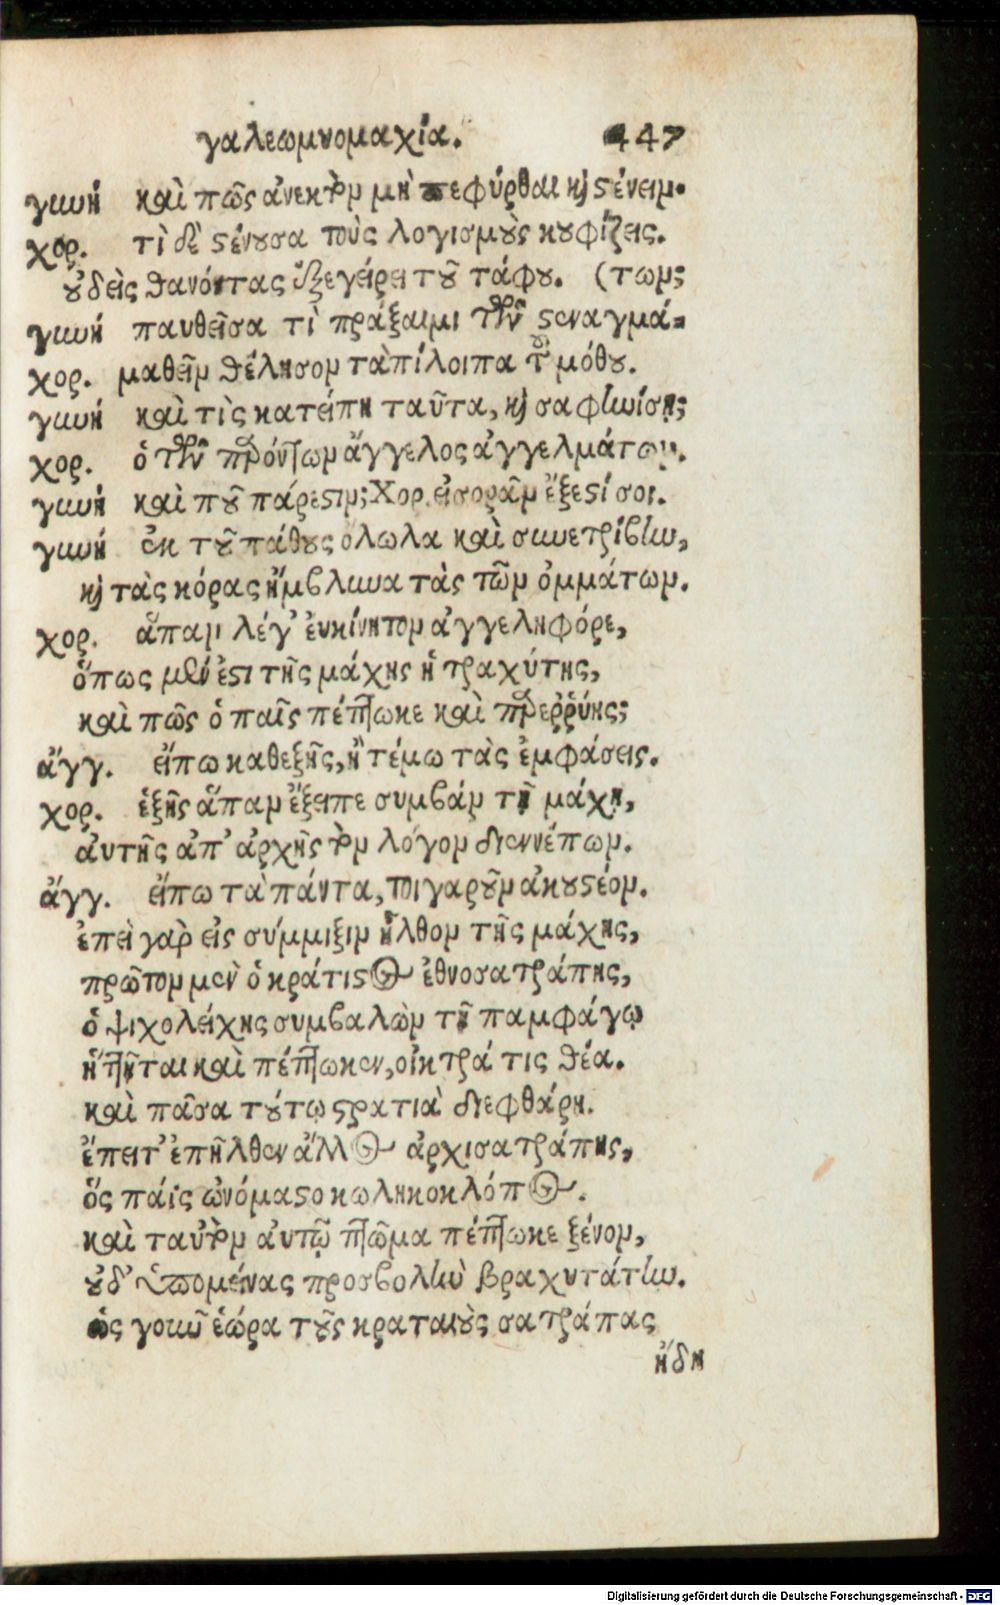 γαλεωμυομαχία. 447
γυνή καὶ πῶς ἀνεκτὸν μὴ πεφύρθαι καὶ στένειν.
χορ. τί δὲ στένουσα τοὺς λογισμοὺς κουφίζεις.
οὐδεὶς θανόντας ἐξεγείρει τοῦ τάφου. (των;
γυνή παυθεῖσα τί πράξαιμι τῶν στεναγμά-
χορ. μαθεῖν θέλησον τἀπίλοιπα τοῦ μόθου.
γυνή καὶ τίς κατείπῃ ταῦτα, καὶ σαφηνίσῃ;
χορ. ὁ τῶν πρόντων ἄγγελος ἀγγελμάτων.
γυνή καὶ ποῦ πάρεστιν; Χορ. εἰσορᾶν ἔξεστί σοι.
γυνή ἐκ τοῦ πάθους ὄλωλα καὶ συνετρίβην,
καὶ τὰς κόρας ἤμβλυνα τὰς τῶν ὀμμάτων.
χορ. ἅπαν λέγ' ἐυκίνητον ἀγγεληφόρε,
ὅπως μέν ἐστι τῆς μάχης ἡ τραχύτης,
καὶ πῶς ὁ παῖς πέπτωκε καὶ προερρύης;
ἄγγ. εἴπω καθεξῆς, ἢ τέμω τὰς ἐμφάσεις.
χορ. ἑξῆς ἅπαν ἔξειπε συμβὰν τῇ μάχῃ,
ἀυτῆς ἀπ' ἀρχῆς τὸν λόγον διεννέπων.
ἄγγ. εἴπω τὰ πάντα, τοιγαροῦν ἀκουστέον.
ἐπεὶ γὰρ εἰς σύμμιξιν ἦλθον τῆς μάχης,
πρῶτον μὲν ὁ κράτιστος ἐθνοσατράπης,
ὁ ψιχολείχης συμβαλὼν τῇ παμφάγῳ
ἥττηται καὶ πέπτωκεν, οἰκτρά τις θέα.
καὶ πᾶσα τούτῳ στρατιὰ διεφθάρη.
ἔπειτ' ἐπῆλθεν ἄλλος ἀρχισατράπης,
ὅς πάις ὠνόμαστο κωληκοκλόπος.
καὶ ταὐτὸν ἀυτῷ πτῶμα πέπτωκε ξένον,
οὐδ' ὑπομείνας προσβολὴν βραχυτάτην.
ὡς γοῦν ἑώρα τοὺς κραταιοὺς σατράπας
ἤδη
Digitalisierung gefördert durch die Deutsche Forschungsgemeinschaft - DFG